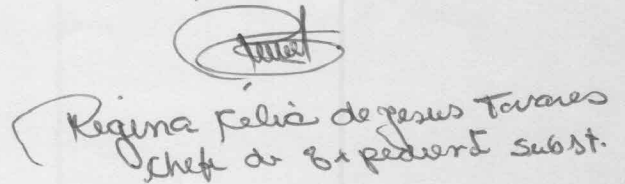 Regina Félix de Jesus Tavares
Chefe de Expedient Subst.